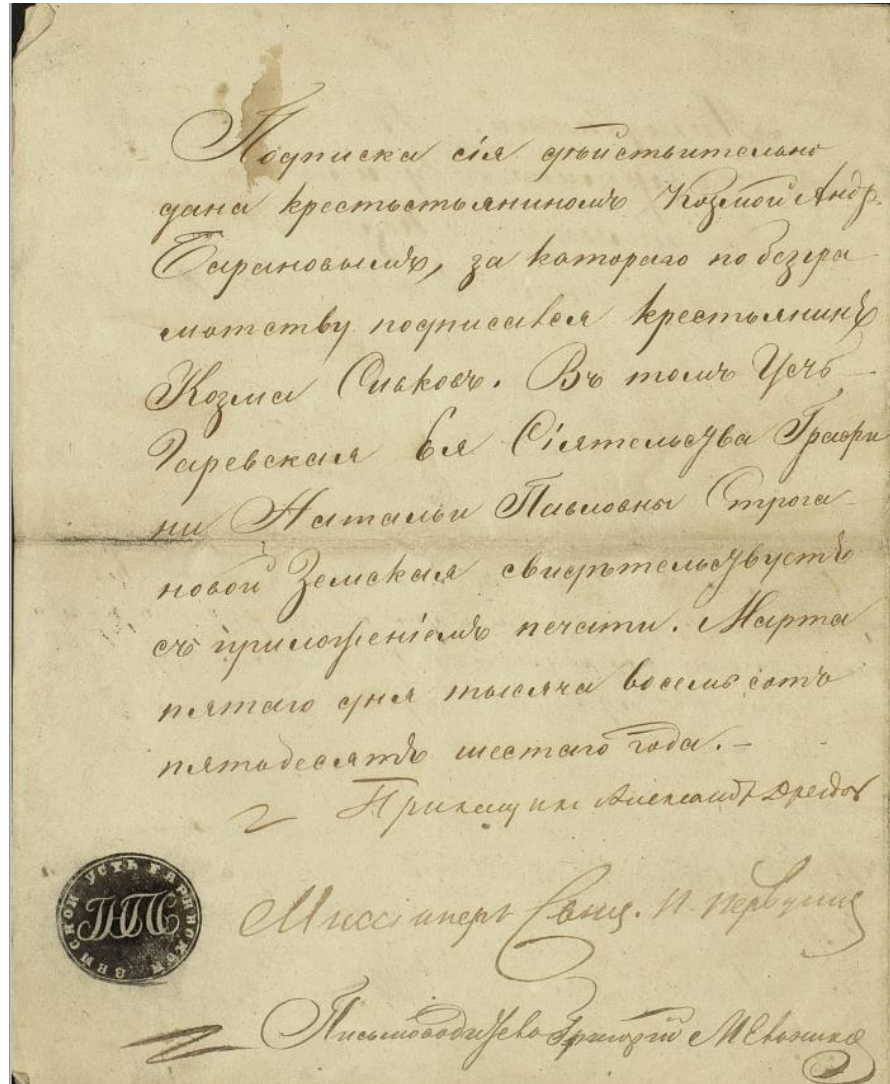 Подписка сія дѣйствительно
дана крестьстьяниномъ Козмой Андр.
Барановымъ, за котораго по безгра
мотству подписался крестьянинъ
Козма Сильковъ. Въ томъ Усть-
Гаревская Ея Сіятельства Графи
ни Натальи Павловны Строга-
новой Земская свидѣтельствуетъ
съ приложеніемъ печати. Марта
пятаго дня тысяча восемь сотъ
пятодесятъ шестаго года. –
Прикащикъ Александръ
Миссіонеръ Свящ. П. Первушин
Письмоводитель Григорій
УСТЬ ГАРЕВСКОЙ ЗЕМСКОЙ